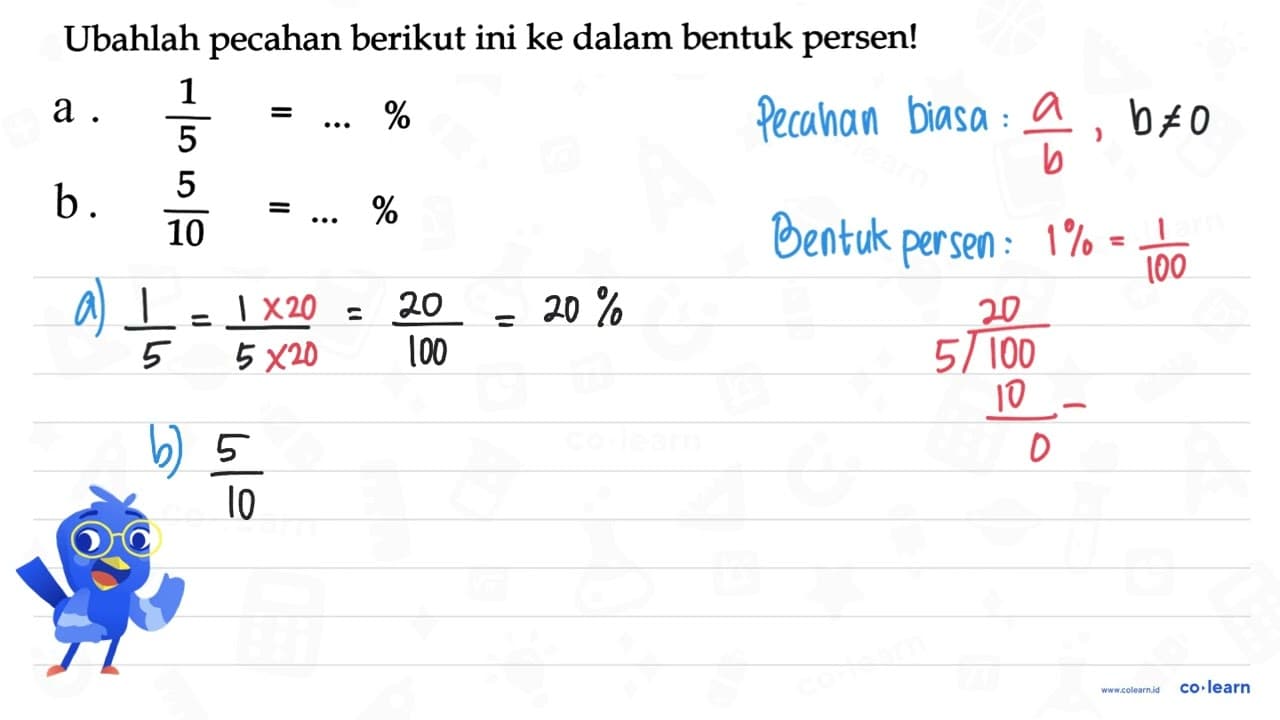 Ubahlah pecahan berikut ini ke dalam bentuk persen!
a . 1/5 = ... %
b . 5/10 = ... %
Pecahan biasa : a/b , b≠0
Bentuk persen : 1% = 1/100
a) 1/5 = 1 x20/5 x20 = 20/100 = 20 %
20
5/100
10 -
0
b) 5/10
www.colearn.id co·learn